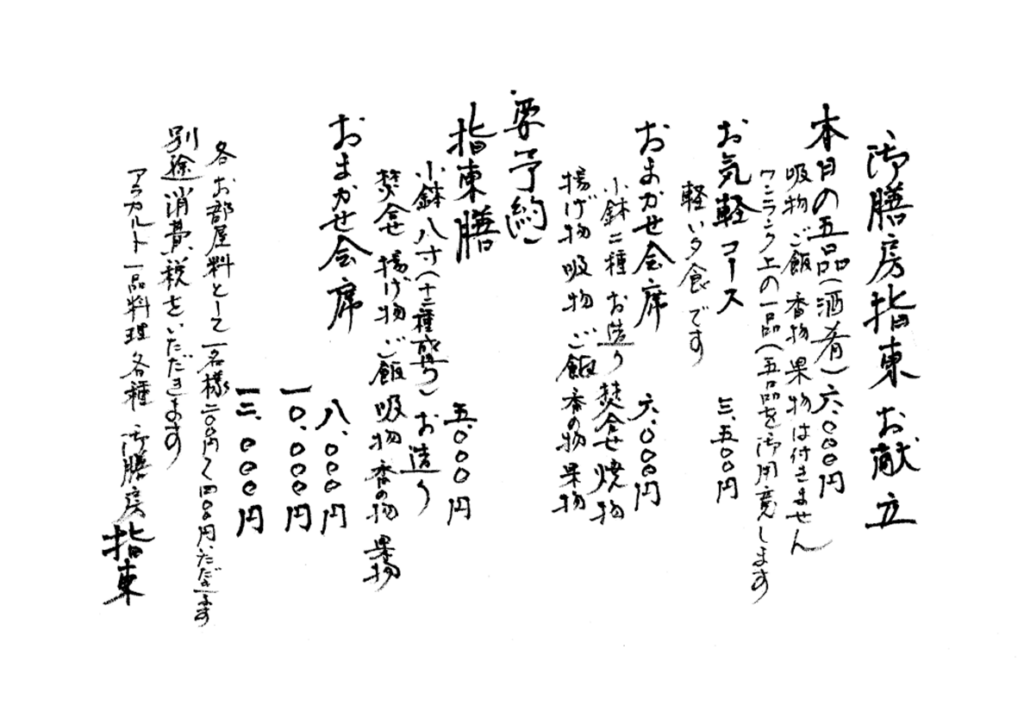 御膳房指東 お献立
本日の五品(酒肴)六.000円
吸物 ご飯 香物 果物は付きません
ワンランク上の一品(五品を御用意します
お気軽コース 三.五00円
軽い夕食です
おまかせ会席 六.000円
小鉢二種 お造り 焚合せ 焼物
揚げ物 吸物 ご飯 香の物 果物
要予約
指東膳 五.000円
小鉢 八寸(十二種盛り) お造り
焚合せ 揚げ物 ご飯 吸物 香の物 果物
おまかせ会席 八.000円
一0.000円
一二.000円
各お部屋料として一名様二00円〜四00円いただきます
別途消費税をいただきます
アラカルト一品料理各種 御膳房 指東